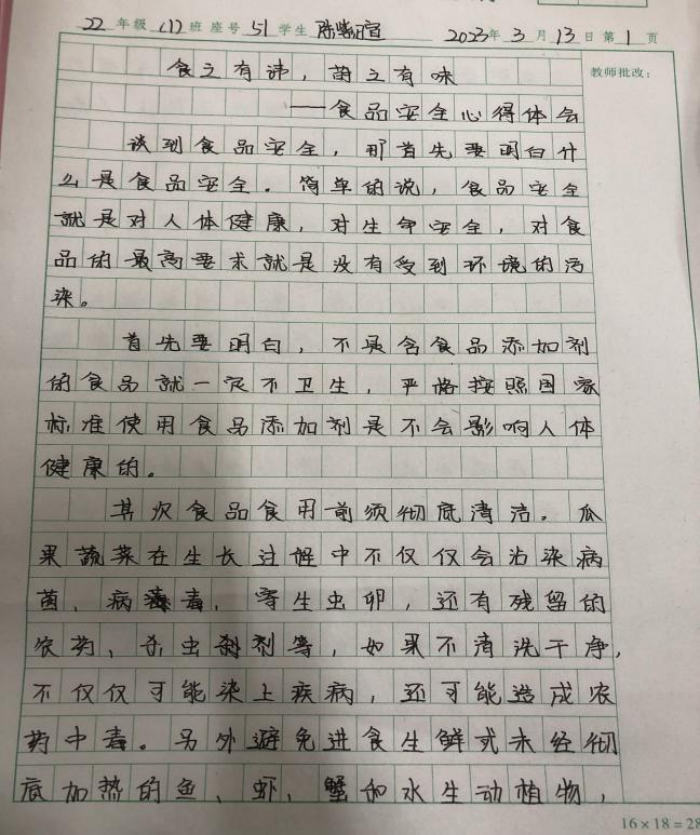 22年级(1)班 座号51 学生陈紫暄 2023年3月13日 第1页
教师批改：
食之有讳，苗之有味
——食品安全心得体会
谈到食品安全，那首先要明白什
么是食品安全。简单的说，食品安全
就是对人体健康，对生命安全，对食
品的最高要求就是没有受到环境的污
染。
首先要明白，不是含食品添加剂
的食品就一定不卫生，严格按照国家
标准使用食品添加剂是不会影响人体
健康的。
其次食品食用前须彻底清洁。瓜
果蔬菜在生长过程中不仅仅会沾染病
菌、病毒，寄生虫卵，还有残留的
农药、杀虫剂等，如果不清洗干净，
不仅仅可能染上疾病，还可能造成农
药中毒。另外避免进食生鲜或未经彻
底加热的鱼、虾、蟹和水生动植物，
16×18=28